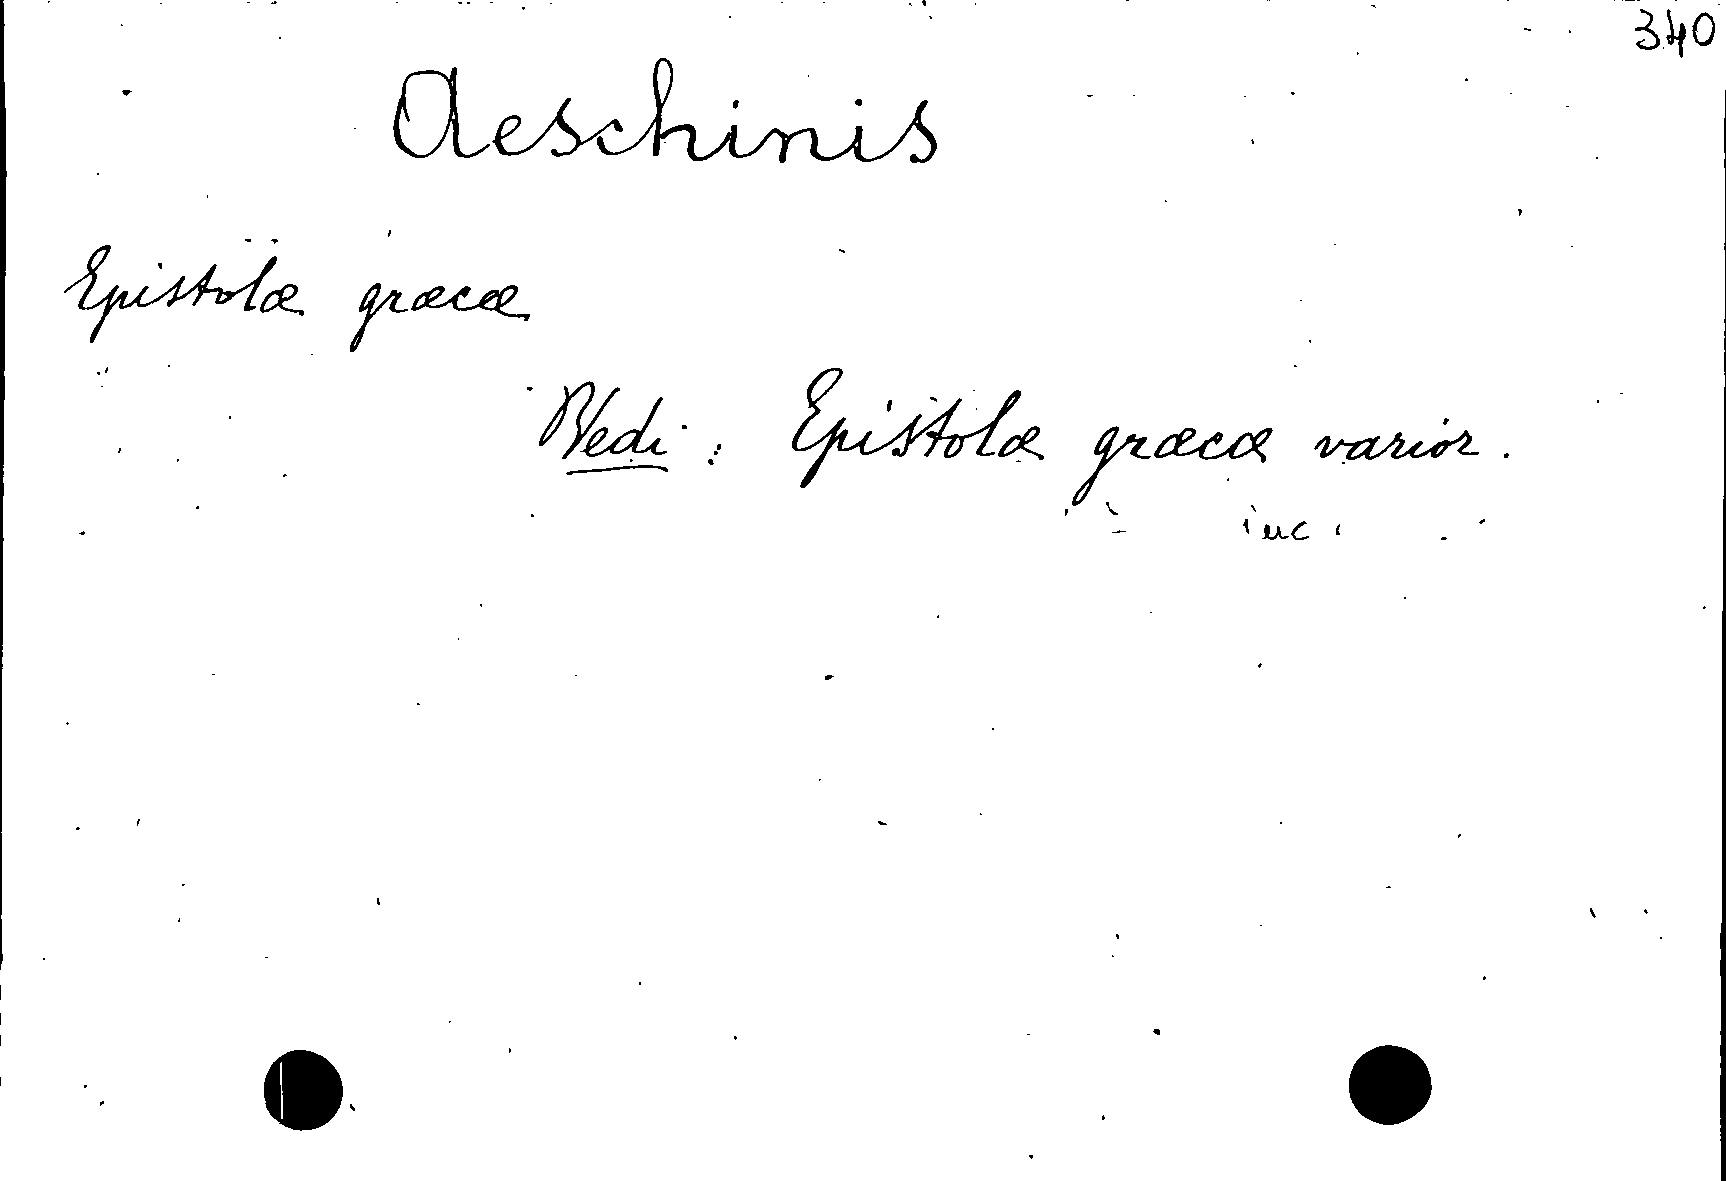 340
Aeschinis
Epistolæ græcæ
Vedi: Epistolæ græcæ varior.
inc.